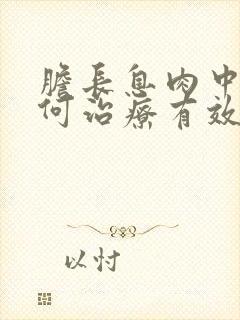 膽長息肉中
何治療有效
以忖